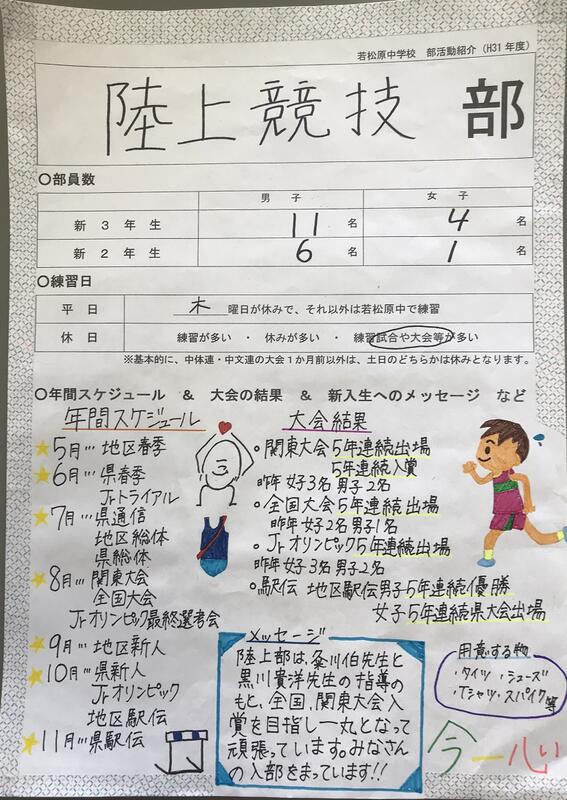 若松原中学校 部活動紹介（H31年度）
陸上競技 部
〇部員数
男子 女子
新3年生 11名 4名
新2年生 6名 1名
〇練習日
平日 木 曜日が休みで、それ以外は若松原中で練習
休日 練習が多い ・ 休みが多い ・ 練習試合や大会等が多い
※基本的に、中体連・中文連の大会1か月前以外は、土日のどちらかは休みとなります。
〇年間スケジュール ＆ 大会の結果 ＆ 新入生へのメッセージ など
年間スケジュール
5月…地区春季
6月…県春季
Jrトライアル
7月…県通信
地区総体
県総体
8月…関東大会
全国大会
Jrオリンピック最終選考会
9月…地区新人
10月…県新人
Jrオリンピック
地区駅伝
11月…県駅伝
大会結果
○関東大会5年連続出場
5年連続入賞
昨年 女子3名 男子2名
○全国大会5年連続出場
昨年 女子2名 男子1名
○Jrオリンピック5年連続出場
昨年 女子3名 男子2名
○駅伝 地区駅伝男子5年連続優勝
女子5年連続県大会出場
メッセージ
陸上部は、粂川伯先生と
黒川貴洋先生の指導の
もと、全国、関東大会入
賞を目指し一丸となって
頑張っています。みなさん
の入部をまっています!!
用意する物
・タイツ ・シューズ
・Tシャツ ・スパイク 等
今一心い